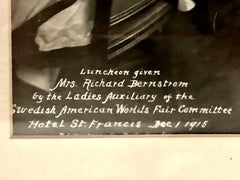 Luncheon given
Mrs. Richard Bernstrom
by the Ladies Auxiliary of the
Swedish American Worlds Fair Committee
Hotel St. Francis Dec 1 1915